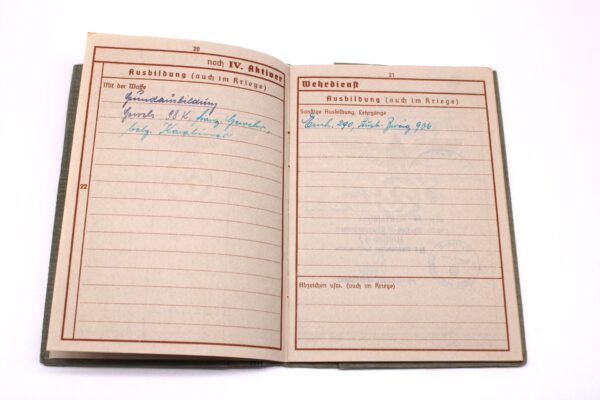 20
noch IV. Aktiver
Ausbildung (auch im Kriege)
Mit der Waffe
Grundausbildung
Gewehr 98 K. franz. Gewehr
belg. Karabiner
22
21
Wehrdienst
Ausbildung (auch im Kriege)
Sonstige Ausbildung, Lehrgänge
Abzeichen usw. (auch im Kriege)